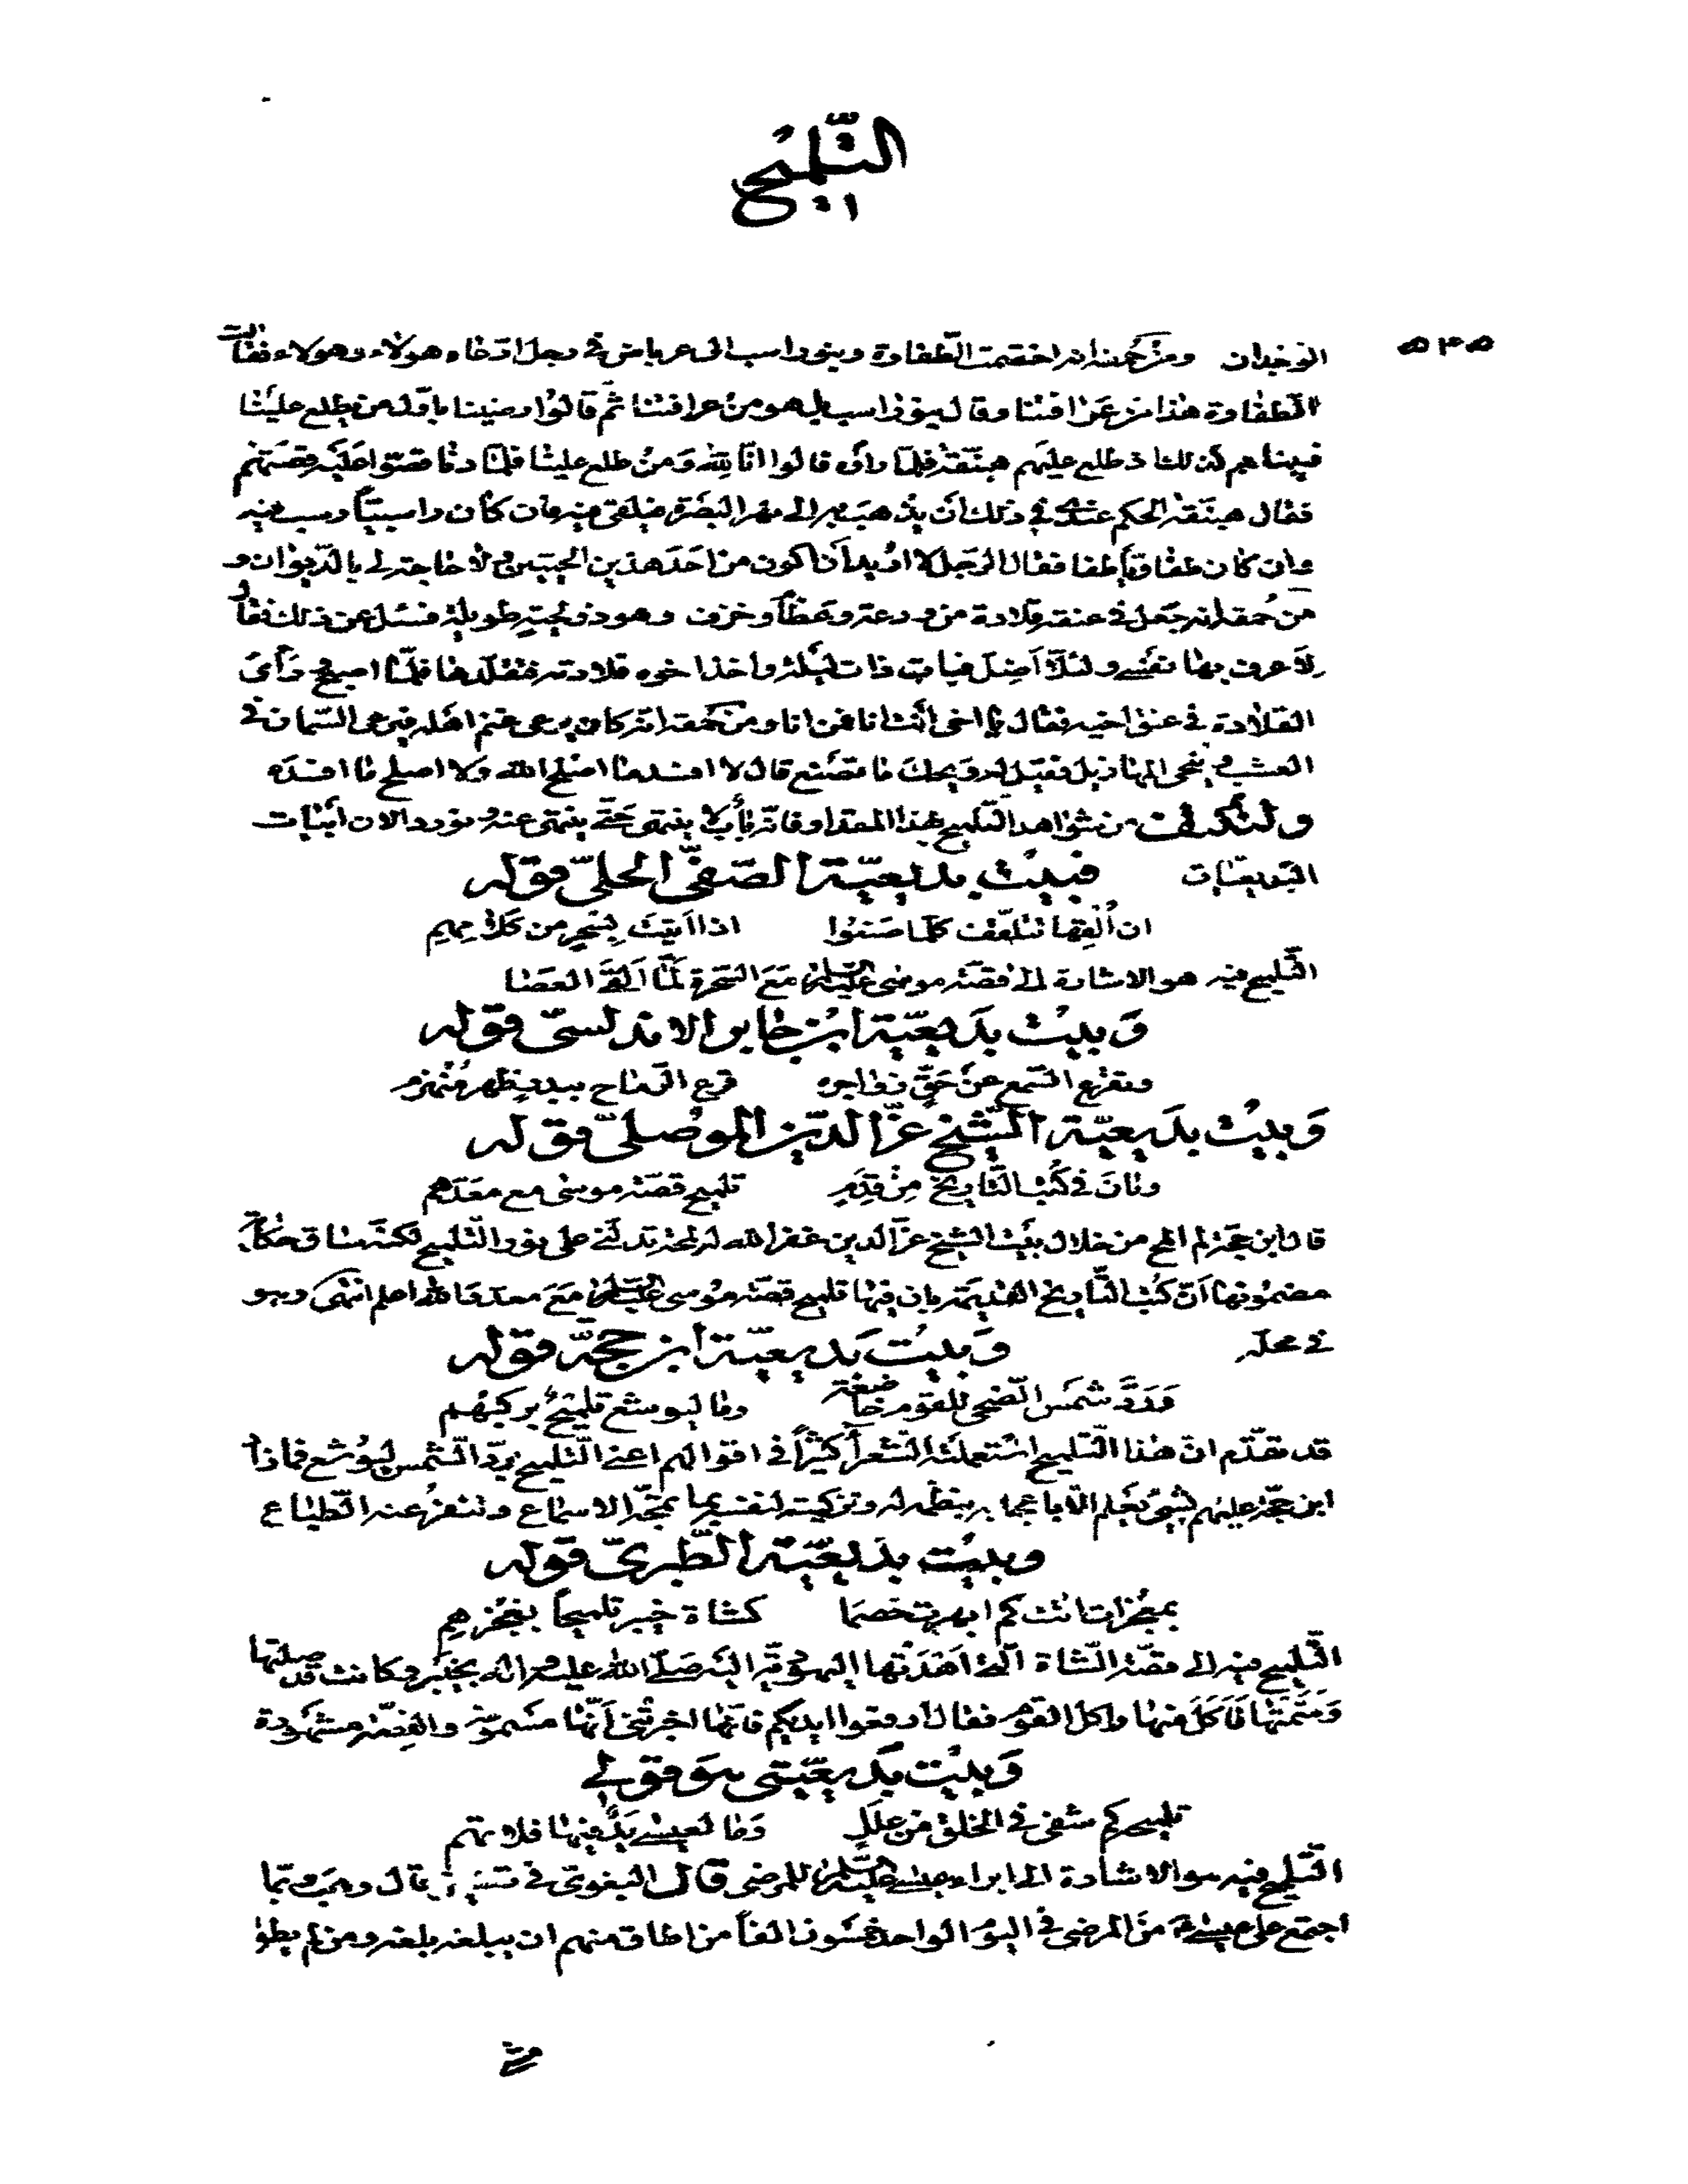 التّلميح
٥٣٥
الوجدان ومن حمقه انه اختصمت الطّفاوة وبنوراسب الى عرباض في رجل ادّعاه هولاء وهولاء فقالت
الطّفاوة هذا من عرافتنا وقال بنوراسب بل هو من عرافتنا ثمّ قالوا رضينا باوّل من يطلع علينا
فبينا هم كذلك اذ طلع عليهم هبنّقة فلمّا راوه قالوا انّا لله ومن طلع علينا فلمّا دنا قصّوا عليه قصّتهم
فقال هبنّقة الحكم عندي في ذلك أن يذهب به الى نهر البصرة فيلقى فيه فان كان راسبيّاً رسب فيه
وان كان طفاويّاً طفا فقال الرّجل لا اريد أن اكون من احد هذين الحيّين ولا حاجة لي بالدّيوان و
من حمقه انه جعل في عنقه قلادة من ودع وعظام وخزف وهو ذو لحية طويلة فسئل عن ذلك فقال
لاعرف بها نفسي ولئلّا أضلّ فبات ذات ليلة واخذ اخوه قلادته فتقلّدها فلمّا اصبح ورأى
القلادة في عنق اخيه فقال يا اخى انت انا فمن انا ومن حمقه انّه كان يرعى غنم اهله فيرعى السّمان في
العشب وينحى المهازيل فقيل له ويحك ما تصنع قال لا افسد ما اصلح الله ولا اصلح ما افسده
ولنكتف من شواهد التّلميح بهذا المقدار فانّه باب لا ينتهى حتّى ينتهى عنه ونورد الان أبيات
البديعيّات فبيت بديعيّة الصّفيّ الحليّ قوله
ان ألقها تتلقّف كلّما صنعوا اذا اتيت بسحر من كلامهم
التّلميح فيه هو الاشارة الى قصّة موسى عليه السّلام مع السّحرة لمّا القى العصا
وبيت بديعيّة ابن جابر الاندلسيّ قوله
ويقرع السّمع عن حقّ زواجره قرع الرّماح ببدر ظهر منهزم
وبيت بديعيّة الشّيخ عزّالدّين الموصليّ قوله
وبان في كتب التّاريخ من قدم تلميح قصّة موسى مع معدّهم
قال ابن حجّة لم المح من خلال بيت الشّيخ عزّالدين غفر الله له لمحة تدلّني على نور التّلميح لكنّه ساق حكاية
مضمونها أنّ كتب التّاريخ القديمة بان فيها تلميح قصّة موسى عليه السّلام مع معدّ والله اعلم انتهى وهو
في محلّه وبيت بديعيّة ابن حجّة قوله
وردّ شمس الضّحى للقوم خاضعة وما ليوشع تلميح بركبهم
قد تقدّم انّ هذا التّلميح استعملته الشّعراء كثيراً في اقوالهم اعني التّلميح بردّ الشّمس ليوشع فماذا زاد
ابن حجّة عليهم ليعلم الّا باعجابه بنظمه له وتزكيته لنفسه بما تمجّه الاسماع وتنفر عنه الطّباع
وبيت بديعيّة الطّبريّ قوله
بمعجزات اتت كم ابهرت خصما كشاة خيبر تلميحاً بعجزهم
التّلميح فيه الى قصّة الشّاة الّتي أهدتها اليهوديّة للنّبيّ صلّى الله عليه واله بخيبر وكانت قد صلتها
وسمّتها فأكل منها واكل القوم فقال ارفعوا ايديكم فانّها اخبرتني أنّها مسمومة والقصّة مشهورة
وبيت بديعيّتي هو قولي
تلميحه كم شفى في الخلق من علل وما لعيسى يدٌ فيها فلا تهم
التّلميح فيه هو الاشارة الى ابراء عيسى عليه السّلام للمرضى قال البغويّ في تفسيره قال وهب ربّما
اجتمع على عيسى من المرضى في اليوم الواحد خمسون الفاً من اطاق منهم ان يبلغه بلغه ومن لم يطق